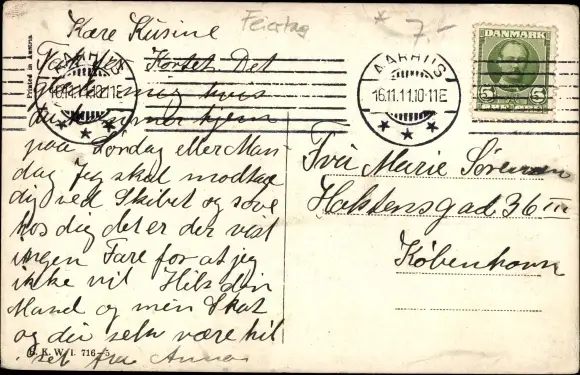 Feiertag
* 7-
Kære Kusine
Tak for Kortet Det
hvis
du kommer hjem
paa Lordag eller Man-
dag Jeg skal modtage
dig ved Skibet og sove
hos dig det er der vist
ingen Fare for at jeg
ikke vil Hils din
Mand og min Skat
og du selv være hil-
set fra Anna
Printed in Austria
AARHUS
16.11.11.10-11E
AARHUS
16.11.11.10-11E
DANMARK
5 5
Frú Marie Sørensen
Holstensgad 36 III
København
B. K. W. I. 716-5